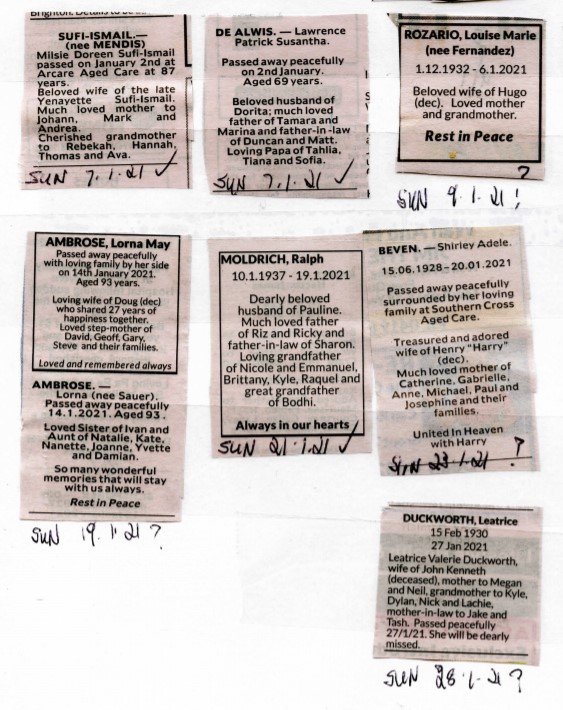 Brighton. Details to be
SUFI-ISMAIL.—
(nee MENDIS)
Milsie Doreen Sufi-Ismail
passed on January 2nd at
Arcare Aged Care at 87
years.
Beloved wife of the late
Yenayette Sufi-Ismail.
Much loved mother to
Johann, Mark and
Andrea.
Cherished grandmother
to Rebekah, Hannah,
Thomas and Ava.
SUN 7.1.21 ✓
DE ALWIS. — Lawrence
Patrick Susantha.
Passed away peacefully
on 2nd January.
Aged 69 years.
Beloved husband of
Dorita; much loved
father of Tamara and
Marina and father-in -law
of Duncan and Matt.
Loving Papa of Tahlia,
Tiana and Sofia.
SUN 7.1.21 ✓
ROZARIO, Louise Marie
(nee Fernandez)
1.12.1932 - 6.1.2021
Beloved wife of Hugo
(dec). Loved mother
and grandmother.
Rest in Peace
?
SUN 9.1.21!
AMBROSE, Lorna May
Passed away peacefully
with loving family by her side
on 14th January 2021.
Aged 93 years.
Loving wife of Doug (dec)
who shared 27 years of
happiness together.
Loved step-mother of
David, Geoff, Gary,
Steve and their families.
Loved and remembered always
AMBROSE. —
Lorna (nee Sauer).
Passed away peacefully
14.1.2021. Aged 93.
Loved Sister of Ivan and
Aunt of Natalie, Kate,
Nanette, Joanne, Yvette
and Damian.
So many wonderful
memories that will stay
with us always.
Rest in Peace
SUN 19.1.21?
MOLDRICH, Ralph
10.1.1937 - 19.1.2021
Dearly beloved
husband of Pauline.
Much loved father
of Riz and Ricky and
father-in-law of Sharon.
Loving grandfather
of Nicole and Emmanuel,
Brittany, Kyle, Raquel and
great grandfather
of Bodhi.
Always in our hearts
SUN 21.1.21 ✓
BEVEN. — Shirley Adele.
15.06.1928–20.01.2021
Passed away peacefully
surrounded by her loving
family at Southern Cross
Aged Care.
Treasured and adored
wife of Henry "Harry"
(dec).
Much loved mother of
Catherine, Gabrielle,
Anne, Michael, Paul and
Josephine and their
families.
United In Heaven
with Harry
SUN 23.1.21 ?
DUCKWORTH, Leatrice
15 Feb 1930
27 Jan 2021
Leatrice Valerie Duckworth,
wife of John Kenneth
(deceased), mother to Megan
and Neil, grandmother to Kyle,
Dylan, Nick and Lachie,
mother-in-law to Jake and
Tash. Passed peacefully
27/1/21. She will be dearly
missed.
SUN 28.1.21?